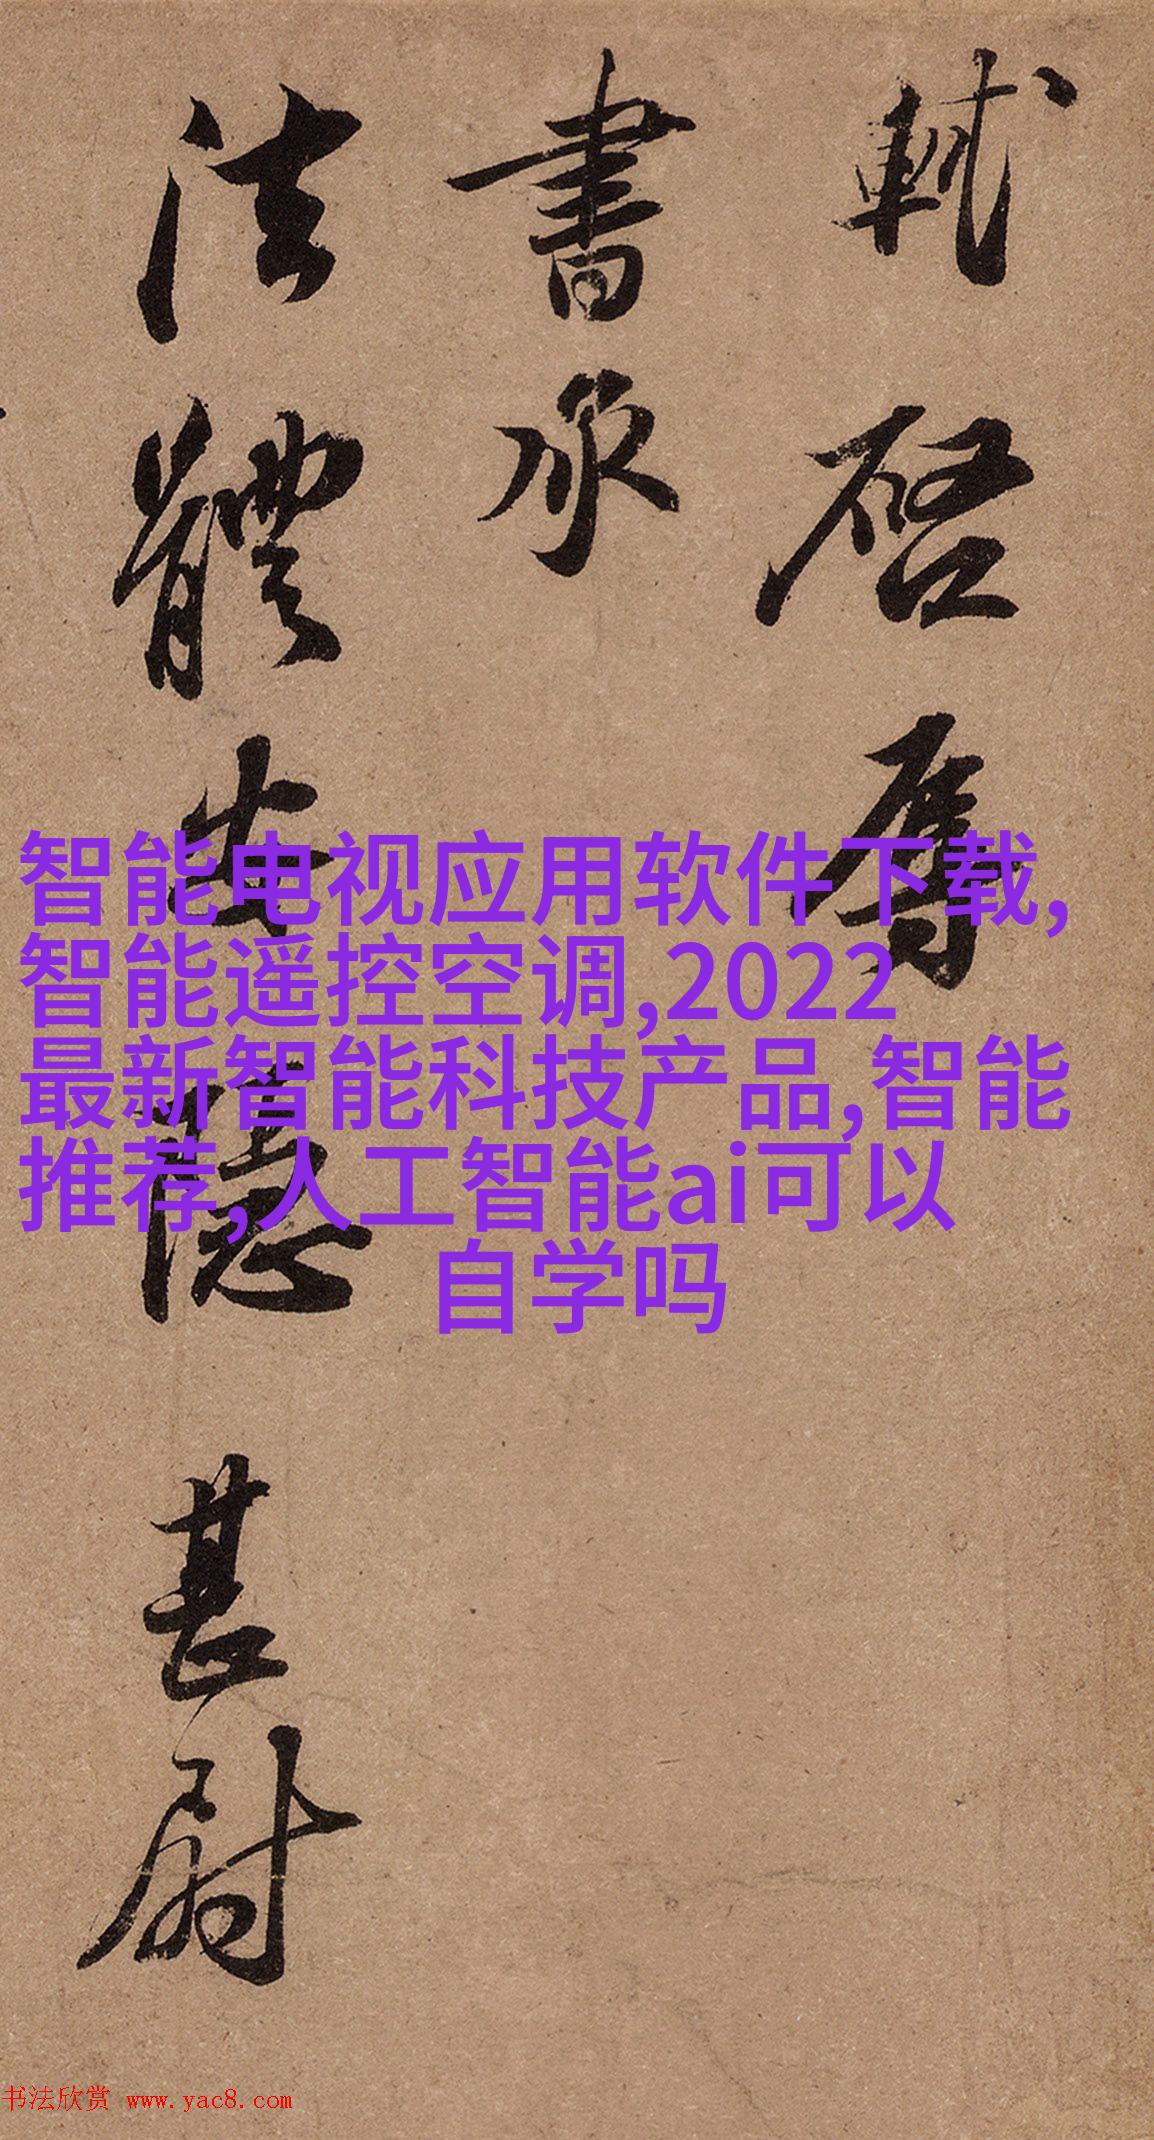 軾啓辱
書承
法體安隱甚尉
智能电视应用软件下载,
智能遥控空调,2022
最新智能科技产品,智能
推荐,人工智能ai可以
自学吗
书法欣赏 www.yac8.com